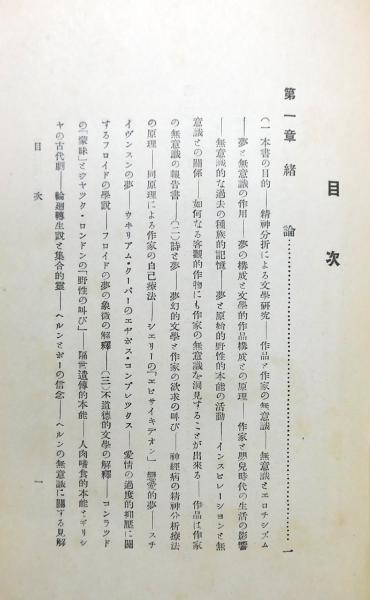 目次
第一章　緒　論……………………………一
(一)本書の目的――精神分析による文學研究――作品と作家の無意識――無意識とエロチシズム
――夢と無意識の作用――夢の構成と文學的作品構成との原理――作家と嬰兒時代の生活の影響
――無意識的な過去の種族的記憶――夢と原始的野性的本能の活動――インスピレーションと無
意識との關係――如何なる客觀的作物にも作家の無意識を洞見することが出來る――作品は作家
の無意識の報告書――(二)詩と夢――夢幻的文學と作家の欲求の叫び――神經病の精神分析療法
の原理――同原理による作家の自己療法――シェリーの「エピサイキデオン」――戀愛的夢――スチ
イヴンスンの夢――ウヰリアム・クーパーのエヂポス・コンプレックス――愛情の過度的抑壓に關
するフロイドの學說――フロイドの夢の象徵の解釋――(三)不道德的文學の解釋――コンラッド
の「蒙昧」とジヤツク・ロンドンの「野性の叫び」――隔世遺傳的本能――人肉嗜食的本能とギリシ
ヤの古代劇――輪廻轉生說と集合的靈――ヘルンとポーの信念――ヘルンの無意識に關する見解
目次
一